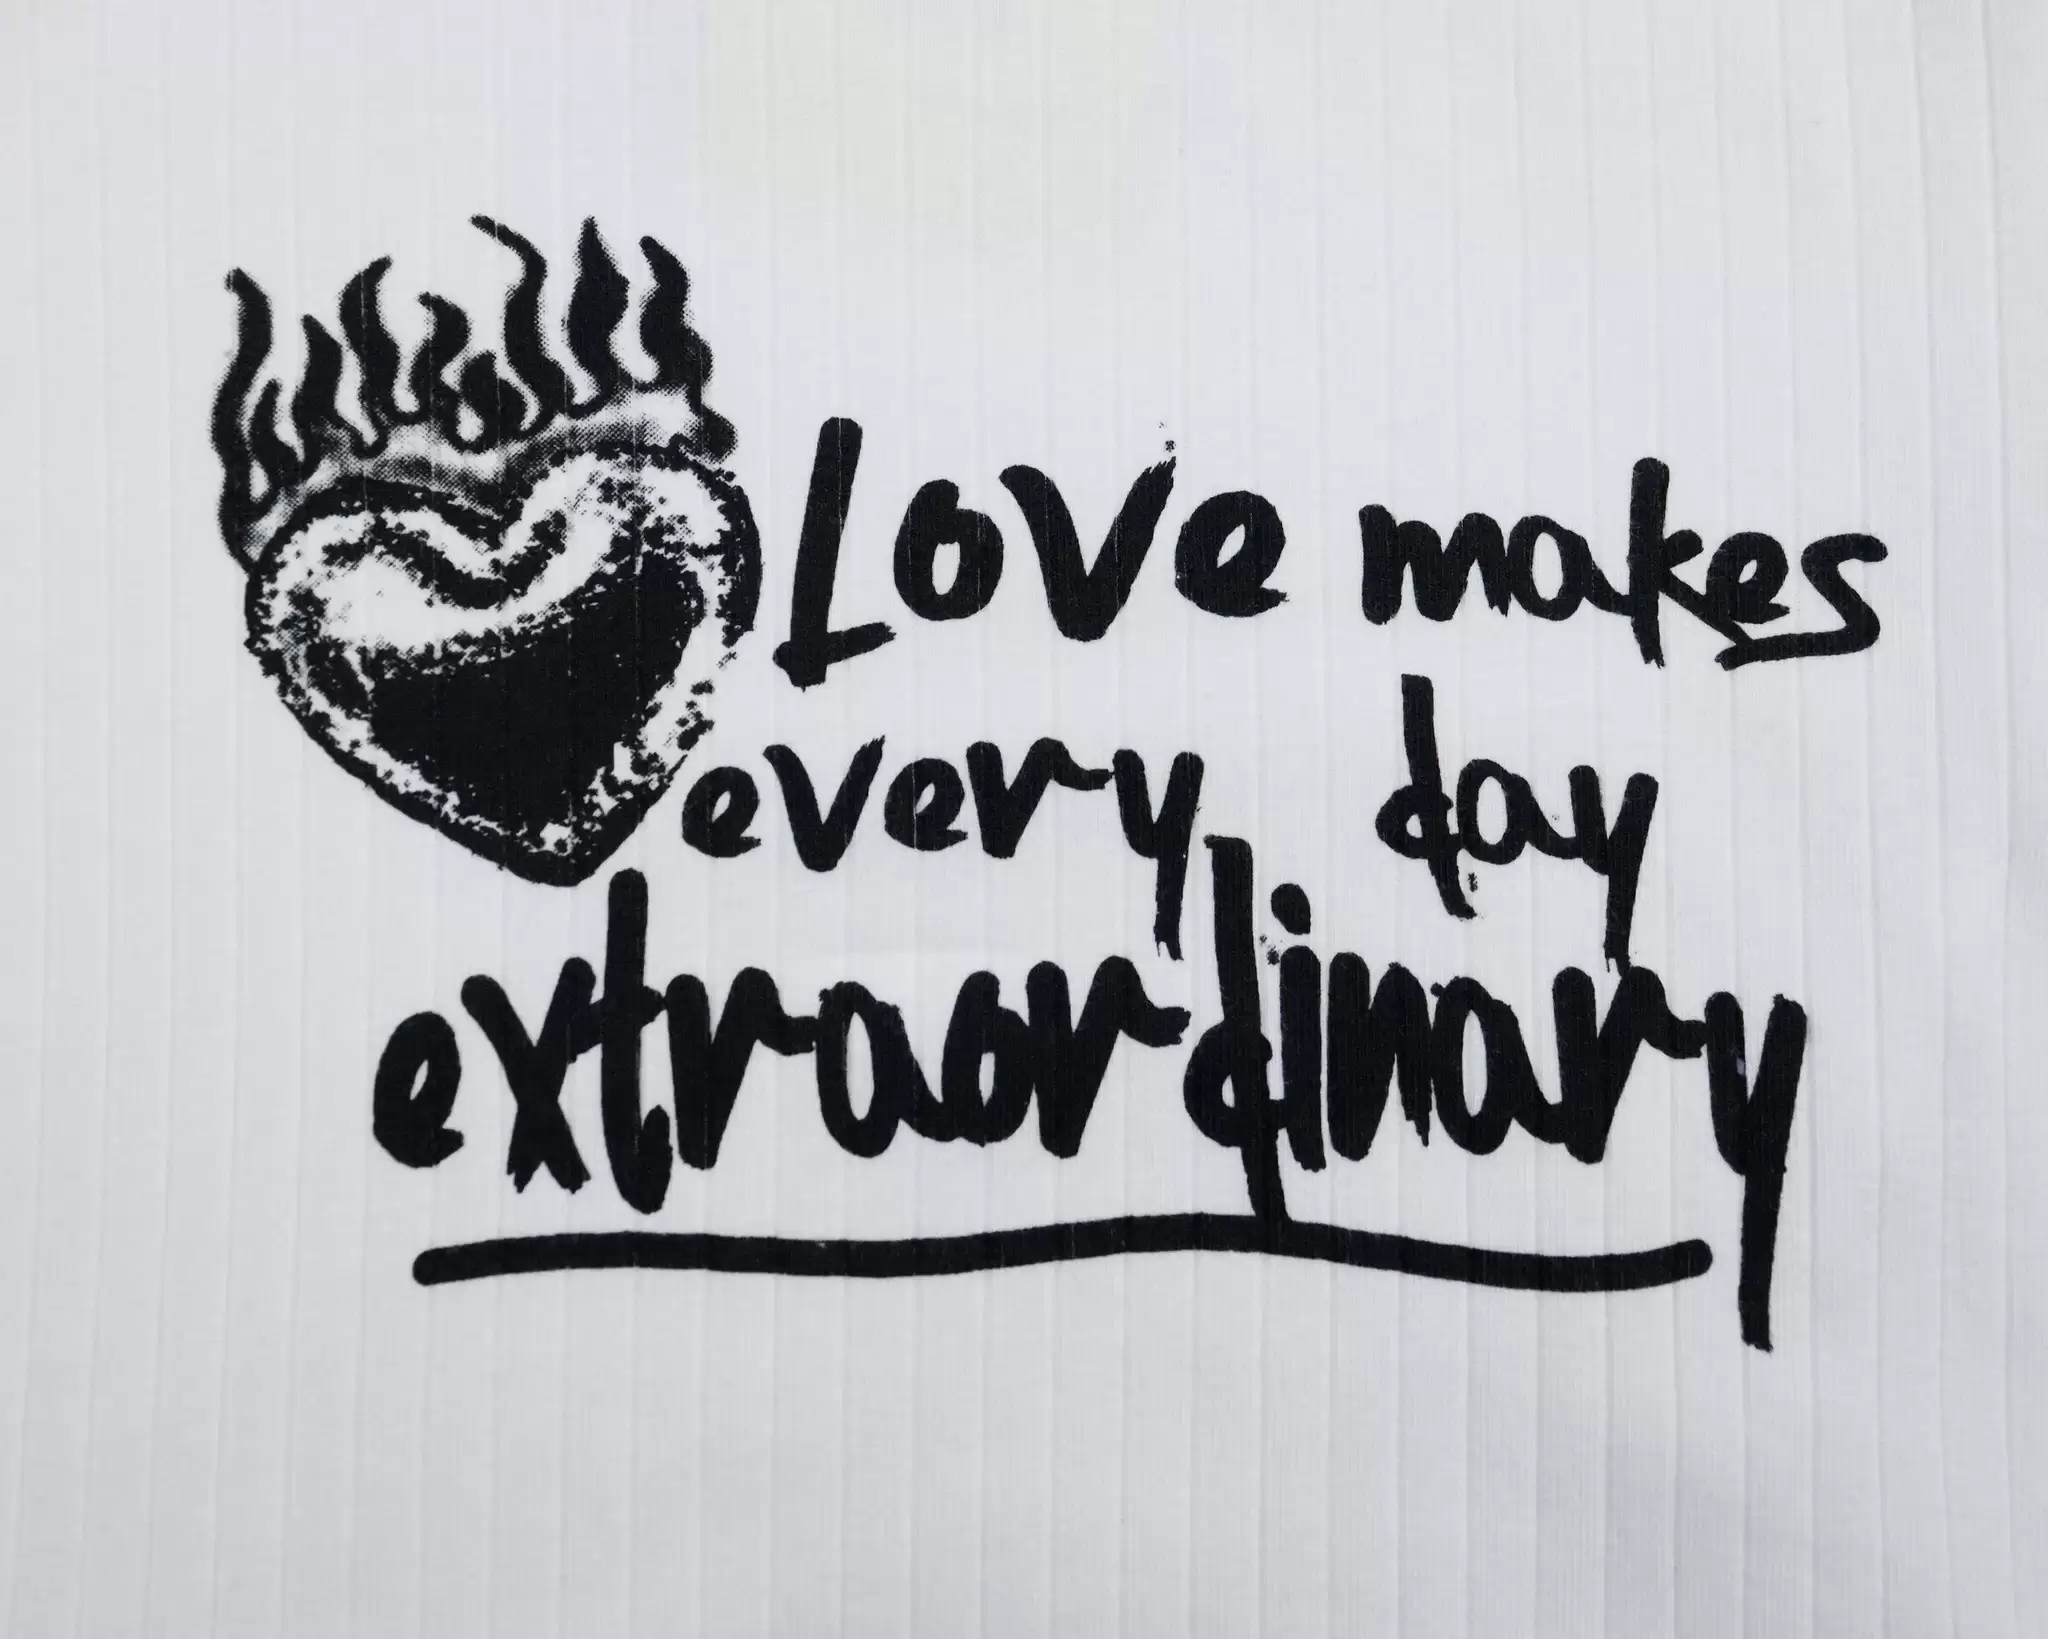 Love makes
every day
extraordinary